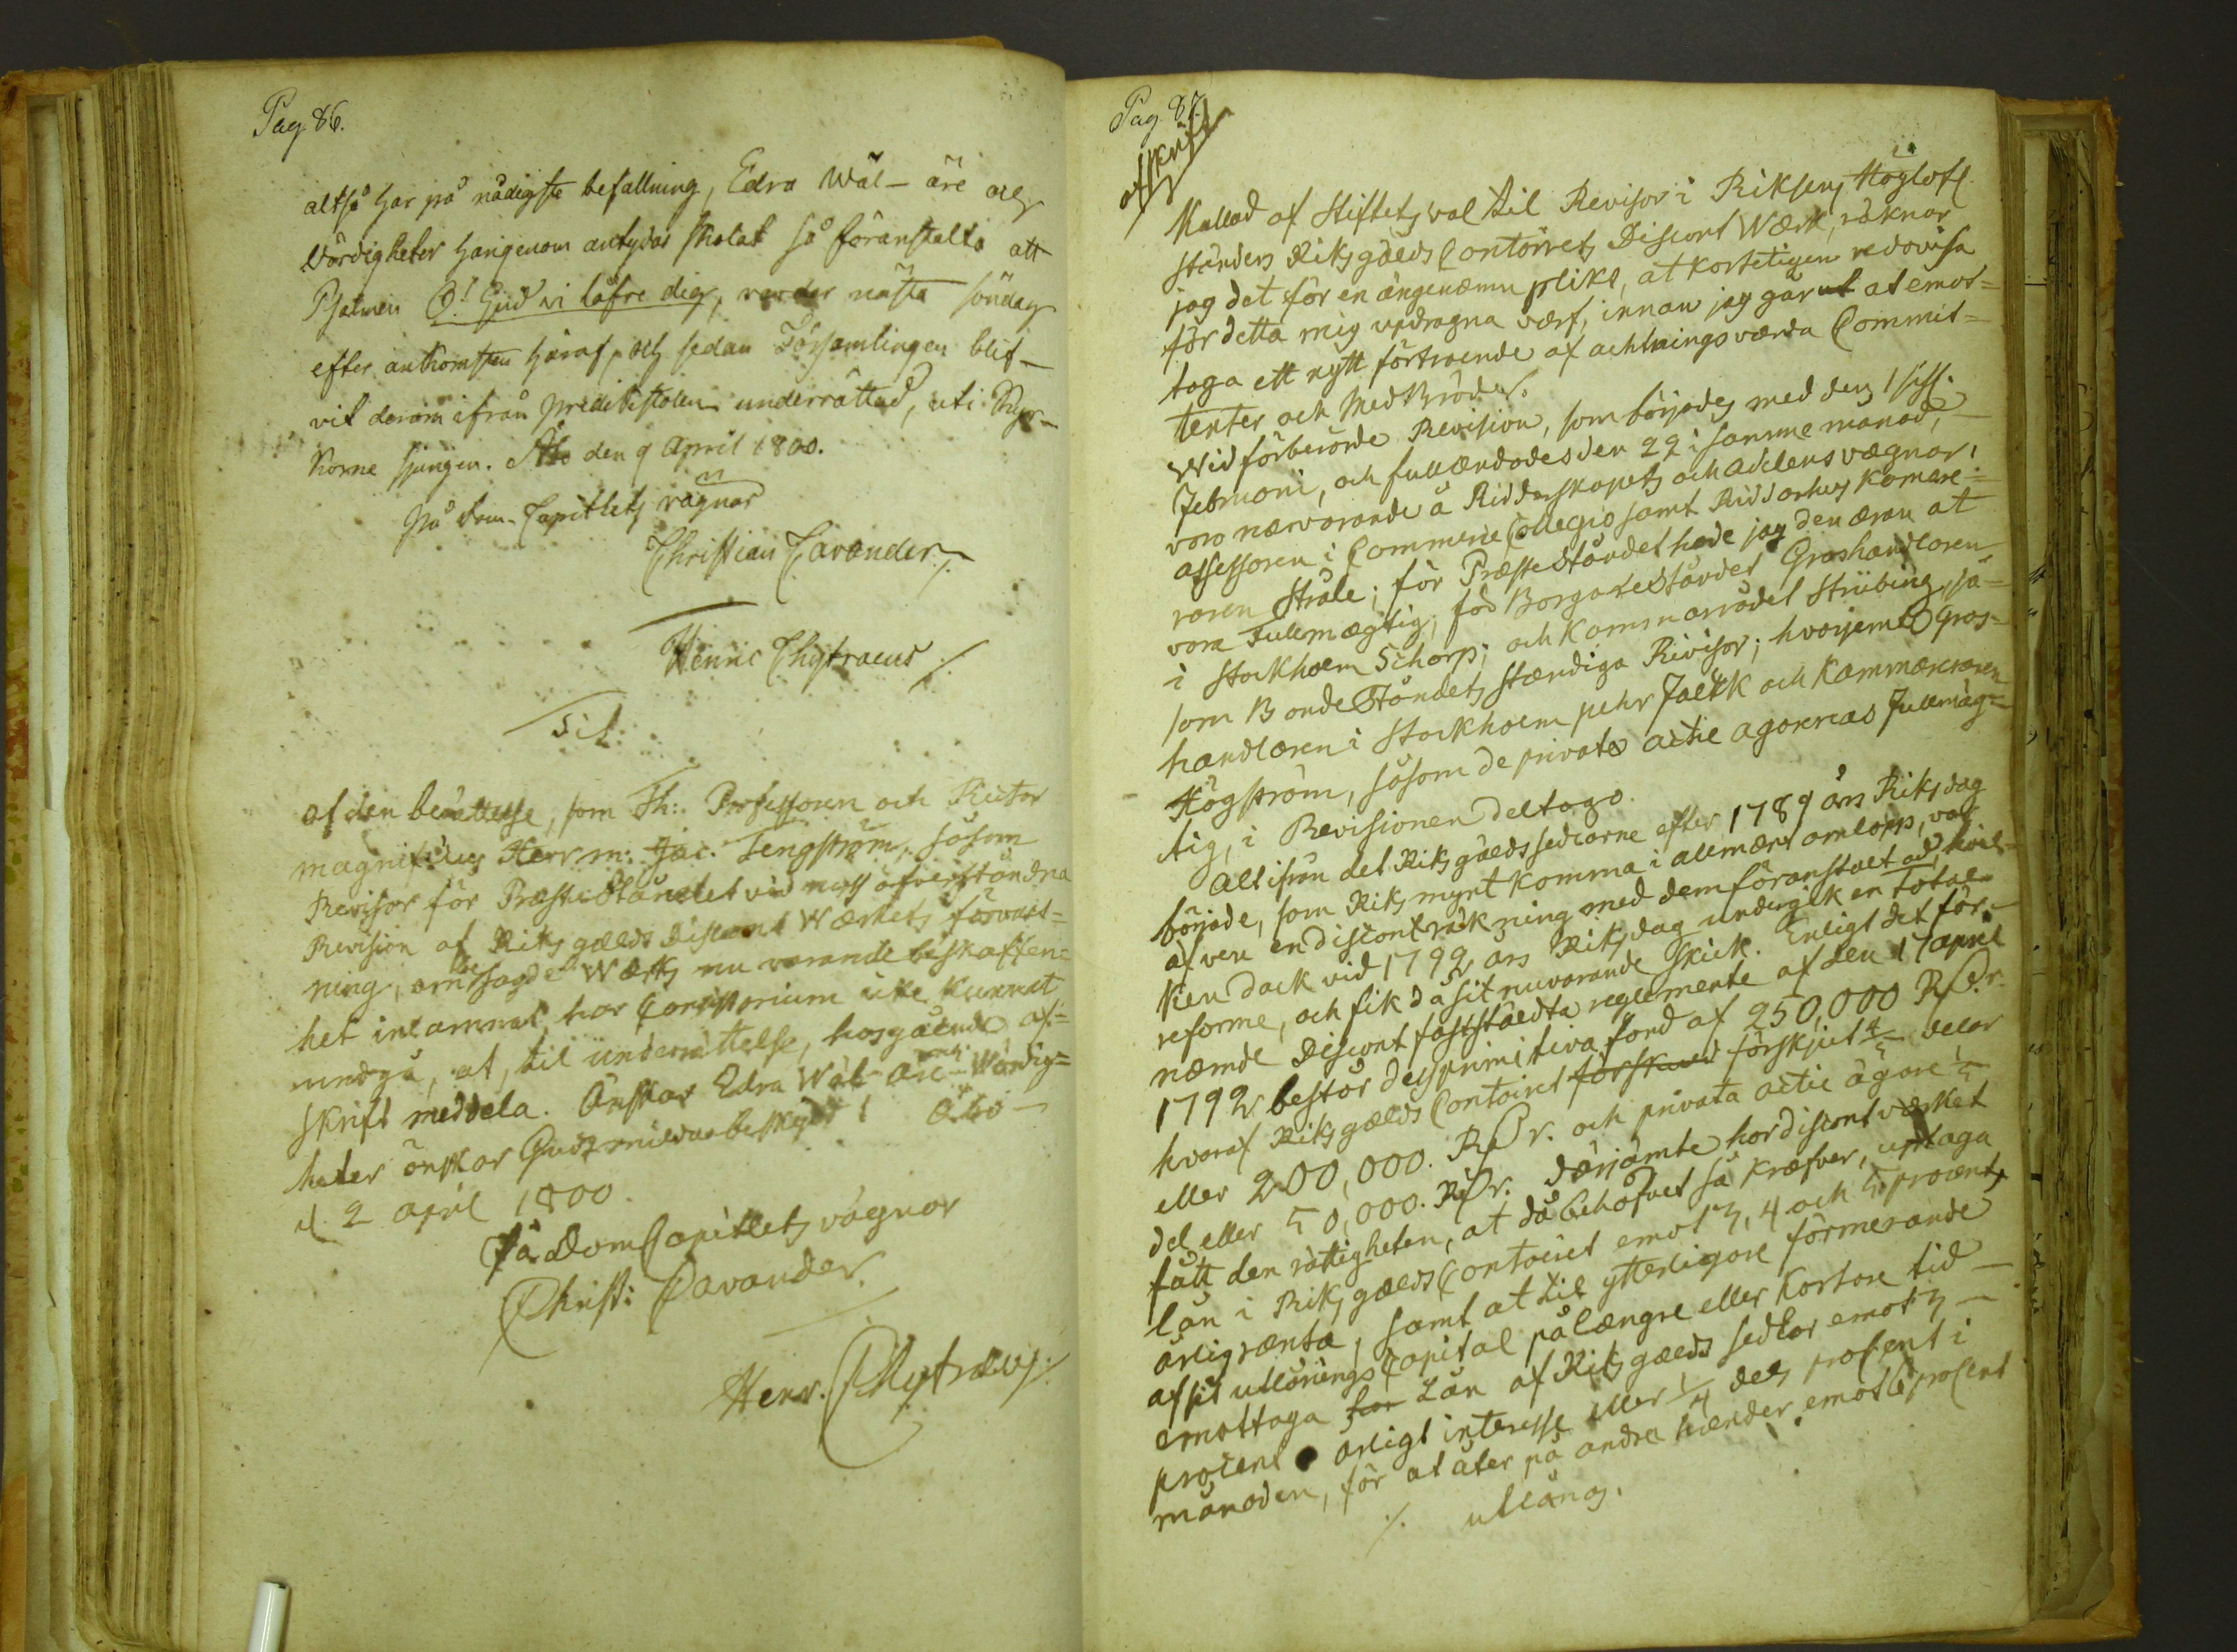 Pag. 86.
altså har på nådigste befallning, Edra Wäl- äre och
Wördigheter härigenom antydas skolat så föranstalta att
Psalmen O! Gud vi låfve dig, varder nästa söndag
efter ankomsten häraf, och sedan Församlingen blif-
vit derom ifrån predikstolen underrättad, uti Kyr-
korne sjungen. Åbo den 9 April 1800.
på Dom-Capitlets vägnar
Christian Cavander ./.
Henric Chytraeus ./.
Til
af den berättelse, som Th: Professoren och Rector
magnificus Herr m: Jac: Tengström, såsom
Revisor för Præste-Ståndet vid nyss öfverståndna
Revision af Riksgælds Discont Wærkets förvalt=
ning, om sagde Wærks nu varande beskaffen=
het inlämnat, har Consistorium icke kunnat
undgå, at, til underrättelse, hosgående af=
skrift meddela. Önskar Edra Wäl- Äre- och Wördig=
heter önskar Guds milda beskydd! Åbo -
d. 2 april 1800.
På DomCapitlets vägnar
Christ: Cavander.
Henr. Chytræus ./.
Pag. 87.
afskrift
Kallad af Stiftets val til Revisor i Riksens Höglofl.
ständers Riksgälds Contoirets Discont Wærk, räknar
jag det för en angenæm plikt, at korteligen redovisa
för detta mig updragna værf, innan jag går ut at emot=
taga ett nytt förtroende af achtningsværda Commit=
tenter och MedBröder.
Wid förberörde Revision, som börjades med den 1 sistl.
Februarii, och fullændades den 22 i samme månad,
voro nærvarande å Ridderskapets och adelens vægnar,
assessoren i Commerce Collegio samt Riddarhus Kamere=
raren Stråle; för PræsteStåndet hade jag den æran at
vara Fullmægtig; för BorgareStåndet Grosshandlaren
i Stockholm Schorp; och Kammarrådet Strübing, så=
som BondeStåndets stændiga Revisor; hvarjemte Gros=
handlaren i Stockholm pehr Falkk och Kammereraren
Högström, såsom de private actie ägarenas Fullmäg=
tig, i Revisionen deltogo.
Alt ifrån det Riksgælds sedlarne efter 1789 års Riksdag
började, som Riks mynt komma i allmænt omlopp, var
äfven en discont räkning med dem föranstaltad, hvil=
ken dock vid 1792 års Riksdag undergik en total
reforme, och fik då sit nuvarande skick. Enligt det för=
næmde Discont fastställdta reglemente af den 17 april
1792 bestör dess primitiva fond af 250,000 RDr.
hvaraf Riksgælds Contoiret förskutit förskjutit 4/5 delar
eller 200,000. RDr. och privata actie ägare 1/5
del eller 50,000. RDr. Därjämte har discont værket
fått den rättigheten, at då behofvet så kræfver, uptaga
lån i RiksgældsContoiret emot 3, 4 och 5 procents
årlig rænta, samt at til ytterligare förmerande
af sit utlånings Capital på længre eller kortare tid
emottaga har Lån af Riksgælds sedlar emot 3
procent årligt interesse eller 1/4 dels procent i
månaden, för at åter på andra hænder emot 6 procent
./. utlånas.